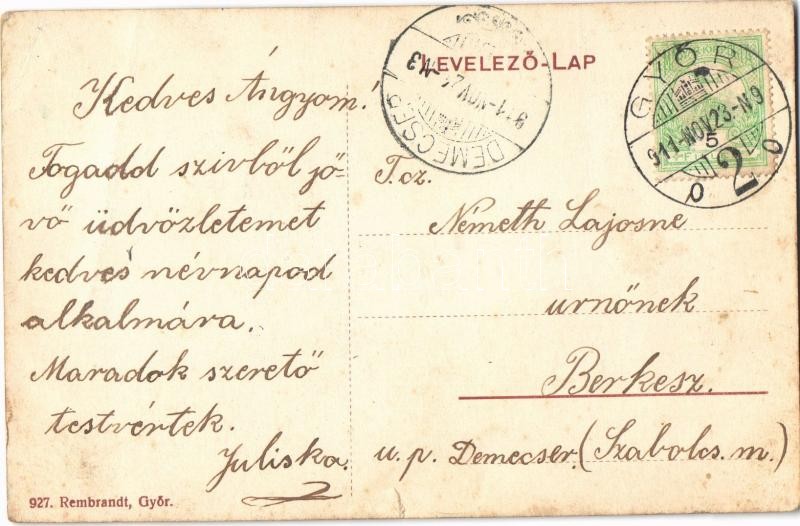 LEVELEZŐ-LAP
GYŐR
911-NOV 23-N9
5
2
DEMECSER
911-NOV
Kedves Ángyom!
Fogadd szivből jö-
vő üdvözletemet
kedves névnapod
alkalmára.
Maradok szerető
testvértek.
Juliska.
T. cz.
Németh Lajosne
urnőnek
Berkesz.
u. p. Demecser. (Szabolcs. m.)
927. Rembrandt, Győr.